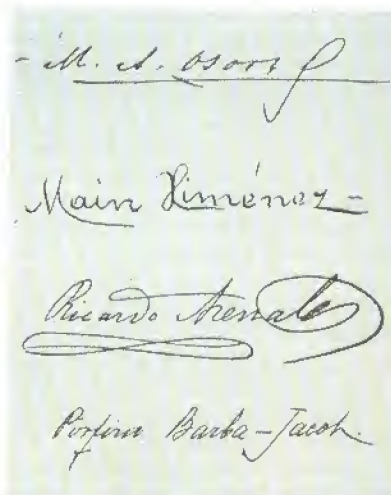 - M. A. Osorio
Main Ximénez -
Ricardo Arenales
Porfirio Barba-Jacob.